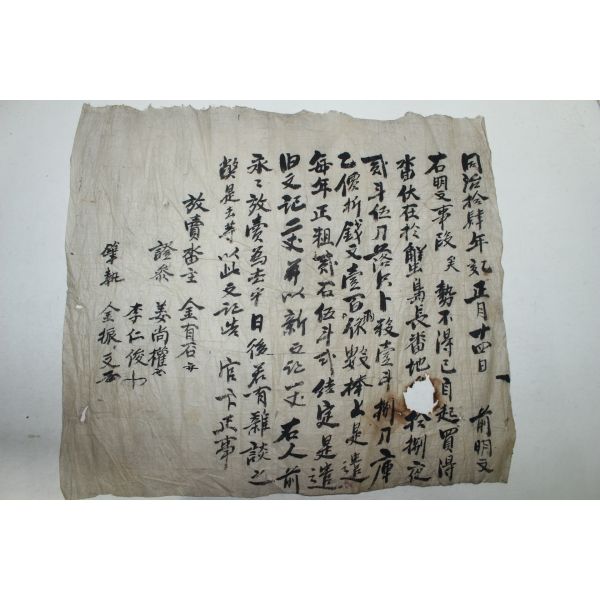 同治拾肆年 正月十四日 前明文
右明文事段矣 勢不得已自起買得
畓伏在於蟹島長番地 拾捌夜
貳斗伍刀落只卜數壹斗捌刀庫
乙價折錢文壹百 依數捧上是遣
每年正租貳石伍斗式 定是遣
旧文記二丈幷以新文記一丈 右人前
永永放賣爲去乎日後若有雜談之
弊是去等以此文記告 官卞正事
放賣畓主 金有石
證參 姜尚權
李仁俊
筆執 金振文